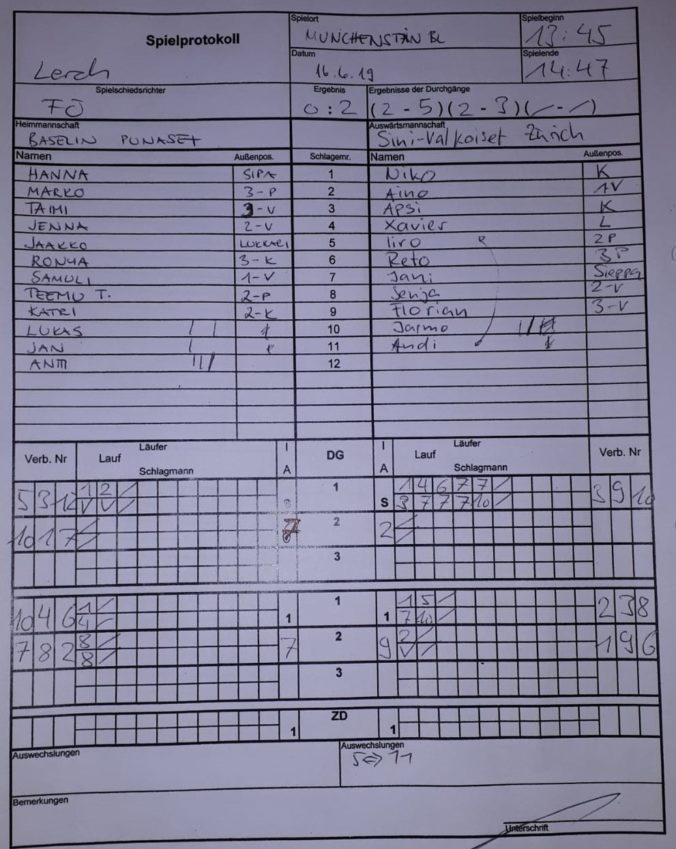 Spielprotokoll
Spielort
MUNCHENSTÄN BL
Spielbeginn
13:45
Lerch
Datum
16.6.19
Spielende
14:47
Spielschiedsrichter
FÖ
Ergebnis
0:2
Ergebnisse der Durchgänge
(2-5)(2-3)(/-/)
Heimmannschaft
BASELIN PUNASET
Auswärtsmannschaft
Sini-Valkoiset Zürich
Namen Außenpos. Schlagmr. Namen Außenpos.
HANNA SIPA 1 Niko K
MARKO 3-P 2 Aino 1V
TAIMI 3-V 3 Apsi K
JENNA 2-V 4 Xavier L
JAAKKO LUKKARI 5 Iiro 2P
RONJA 3-K 6 Reto 3P
SAMULI 1-V 7 Jani Sieppa
TEEMU T. 2-P 8 Senja 2-V
KATRI 2-K 9 Florian 3-V
LUKAS 10 Jarmo
JAN 11 Andi
ANTTI 12
Verb. Nr Läufer I DG I Läufer Verb. Nr
Lauf Lauf
Schlagmann A A Schlagmann
5 3 12 1 2 1 1 4 6 7 7 3 9 10
V V S 3 7 7 7 10
10 1 7 2 2
3
10 4 6 1 1 1 5 2 3 8
4 1 1 7 10
7 8 2 8 7 2 9 2 1 9 6
8 V
3
ZD
1 1
Auswechslungen
Auswechslungen
5⇔11
Bemerkungen
Unterschrift